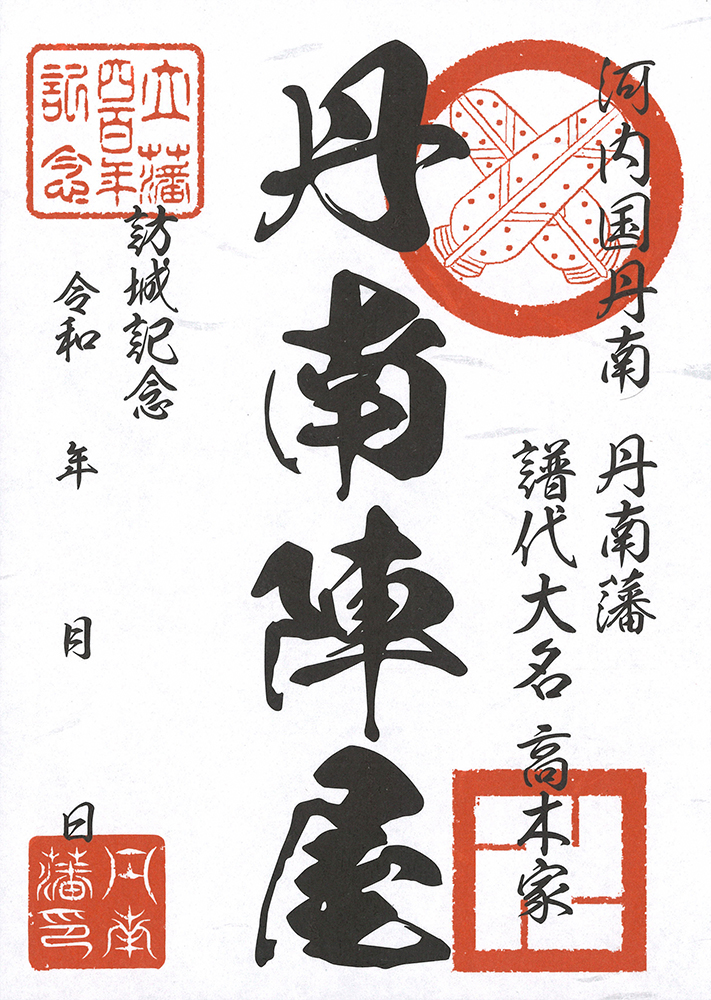 河内国丹南 丹南藩
譜代大名 高木家
丹南陣屋
訪城記念
令和 年 月 日
立藩
四百年
記念
丹南
藩印